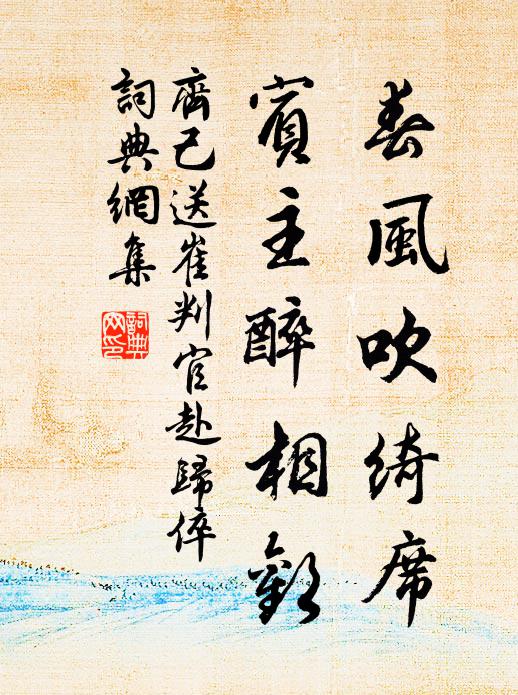 春風吹綺席
賓主醉相歡
齊己送崔判官赴歸倅
詞典網集
詞典
网印